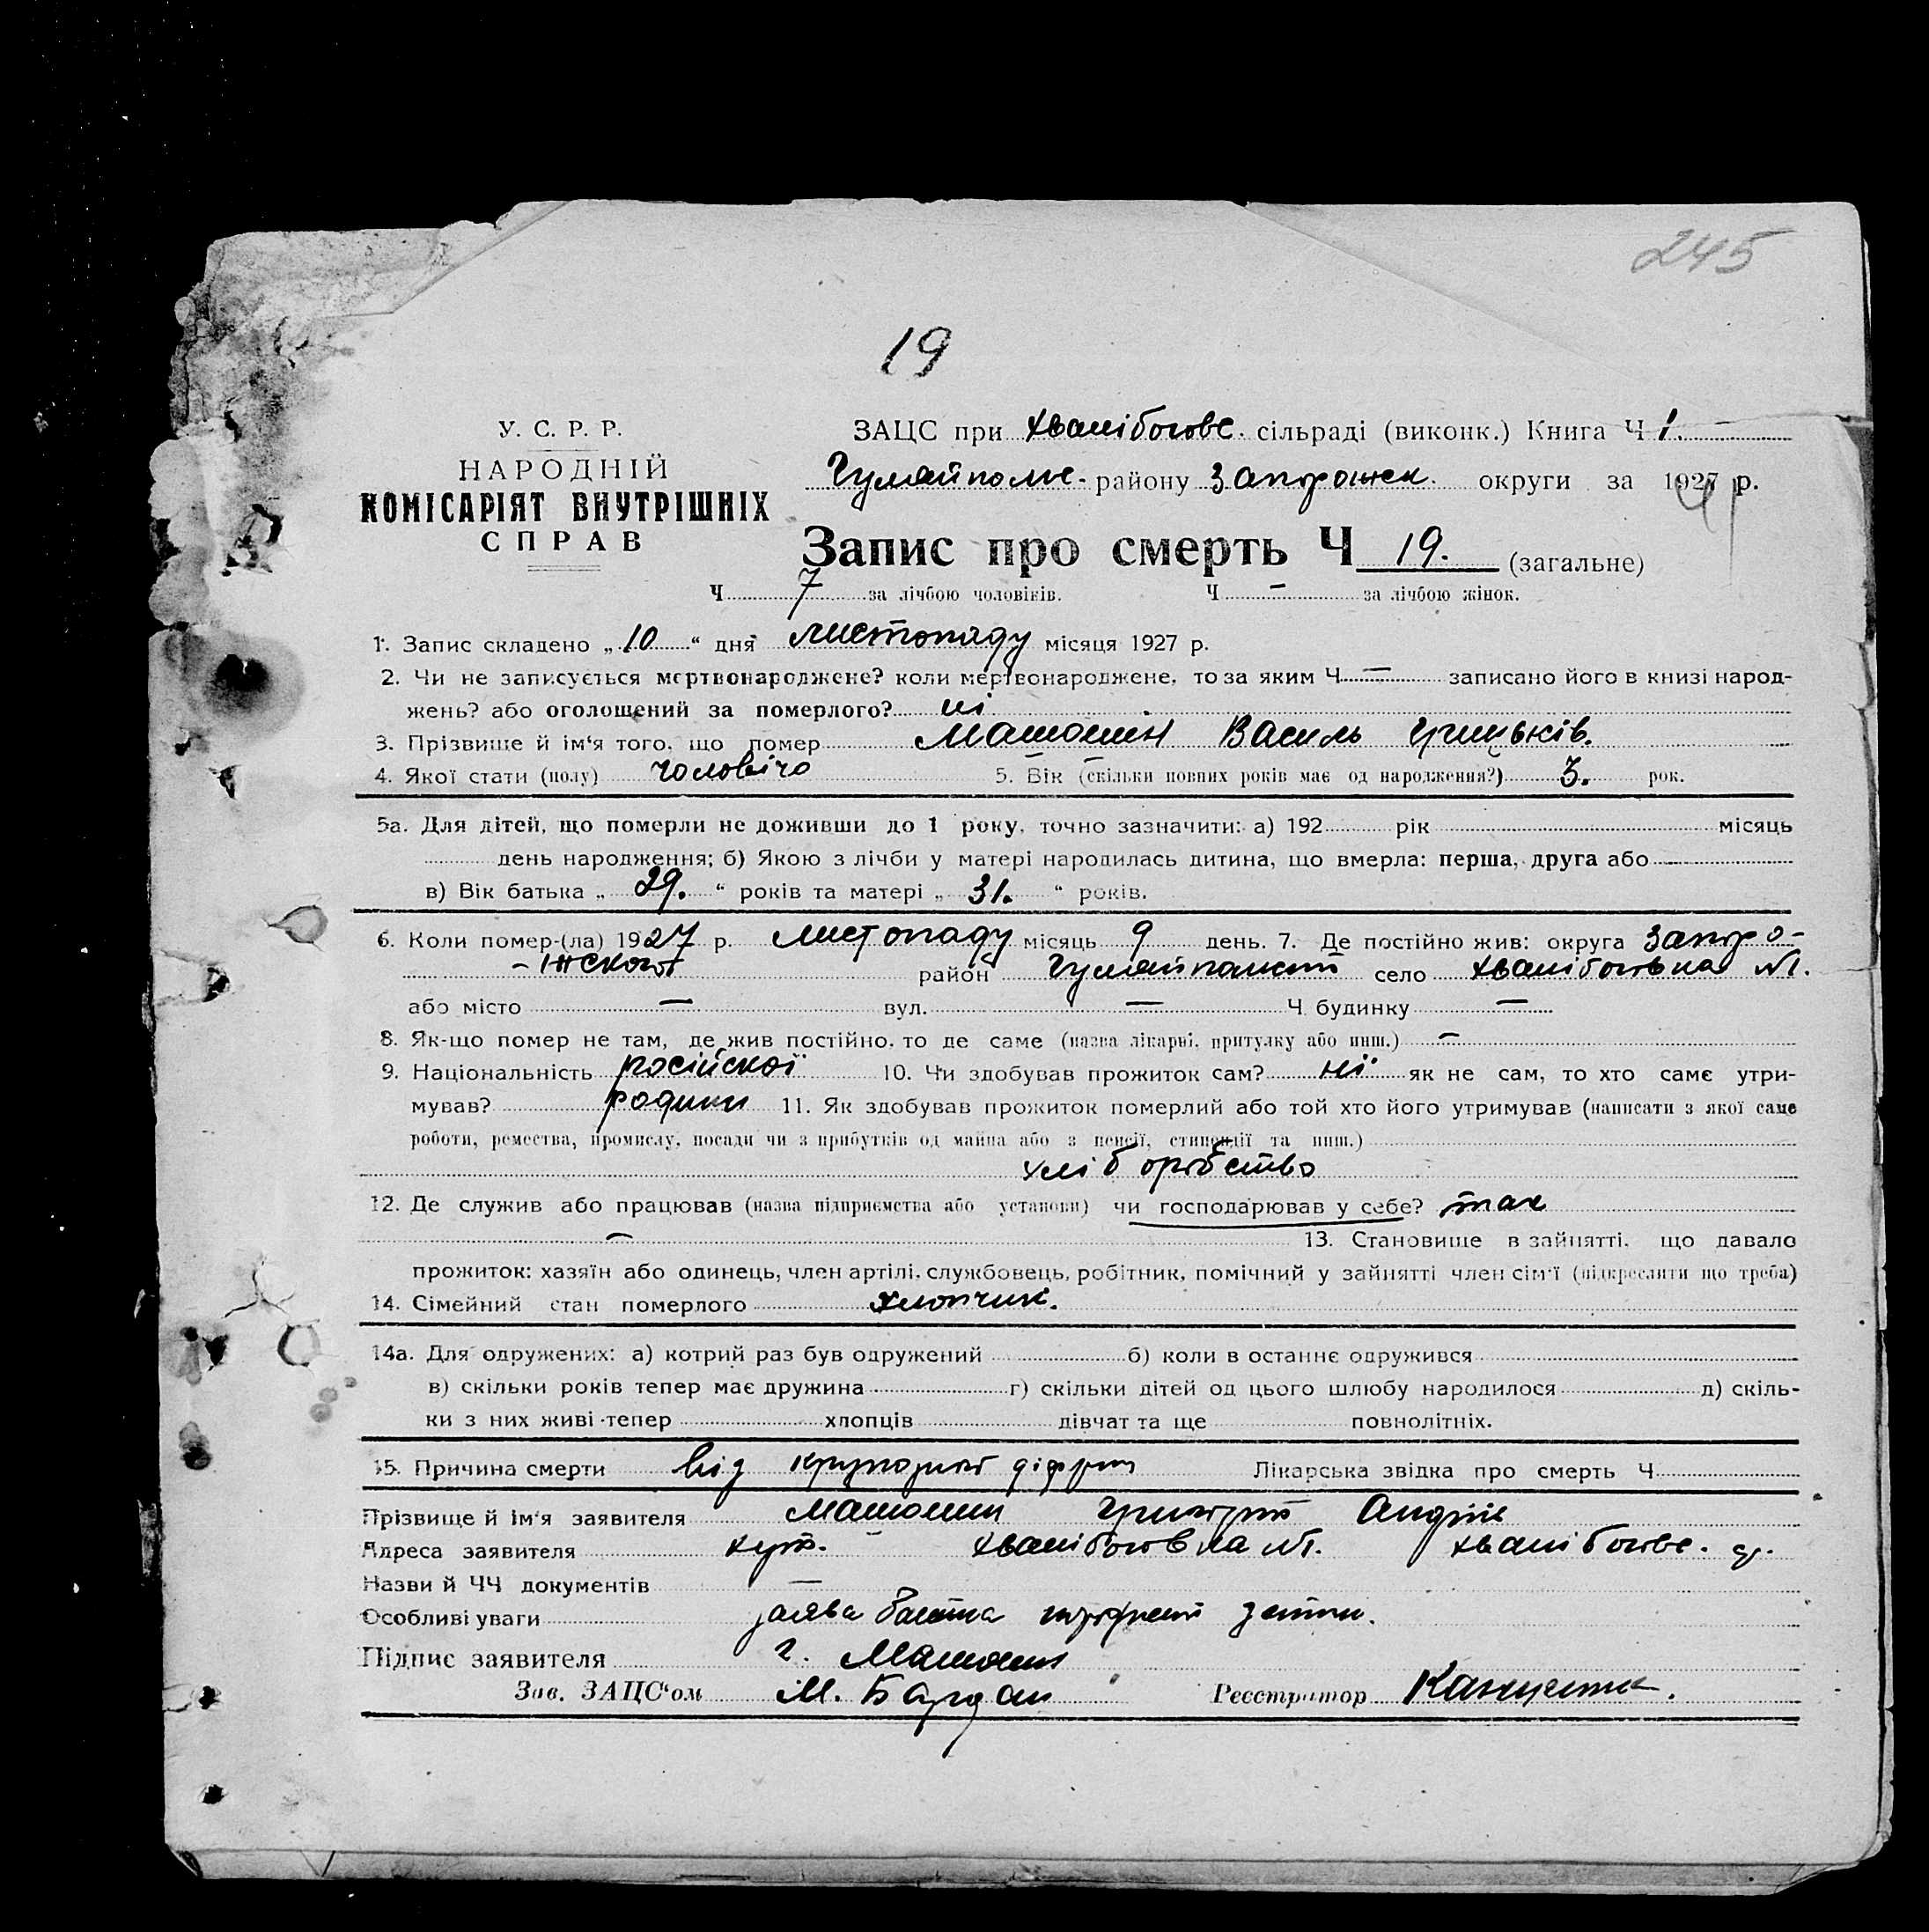 245
19
У. С. Р. Р.
НАРОДНІЙ
КОМІСАРІЯТ ВНУТРІШНІХ
СПРАВ
ЗАЦС при Хвалібогове. сільраді (виконк.) Книга Ч 1.
Гуляйполе. району Запоріжск. округи за 1927 р.
Запис про смерть Ч 19. (загальне)
Ч 7 за лічбою чоловіків. Ч — за лічбою жінок.
1. Запис складено „10“ дня листопаду місяця 1927 р.
2. Чи не записується мертвонароджене? коли мертвонароджене, то за яким Ч — записано його в книзі народ-
жень? або оголошений за померлого? ні
3. Прізвище й ім‘я того, що помер Василь Грицьків.
4. Якої стати (полу) чоловічо 5. Вік (скільки повних років має од народження?) 3. рок.
5а. Для дітей, що померли не доживши до 1 року, точно зазначити: а) 192 рік місяць
день народження; б) Якою з лічби у матері народилась дитина, що вмерла: перша, друга або
в) Вік батька „ 29. “ років та матері „ 31. “ років.
6. Коли помер-(ла) 1927 р. листопаду місяць 9 день. 7. Де постійно жив: округа Запорі-
-жскої район Гуляйпольский село Хвалібоговка №1.
або місто — вул. — Ч будинку —
8. Як-що помер не там, де жив постійно, то де саме (назва лікарні, притулку або инш.) —
9. Національність російскої 10. Чи здобував прожиток сам? ні як не сам, то хто саме утри-
мував? родики 11. Як здобував прожиток померлий або той хто його утримував (написати з якої саме
роботи, ремества, промислу, посади чи з прибутків од майна або з пенсії, стипендії та инш.)
хліборобство
12. Де служив або працював (назва підприємства або установи) чи господарював у себе? так
— 13. Становище в зайнятті, що давало
прожиток: хазяїн або одинець, член артілі, службовець, робітник, помічний у зайнятті член сім‘ї (підкреслити що треба)
14. Сімейний стан померлого хлопчик.
14а. Для одружених: а) котрий раз був одружений б) коли в останнє одружився
в) скільки років тепер має дружина г) скільки дітей од цього шлюбу народилося д) скіль-
ки з них живі тепер хлопців дівчат та ще повнолітніх.
15. Причина смерти від Лікарська звідка про смерть Ч
Прізвище й ім‘я заявителя Григорій Андрій
Адреса заявителя хут. Хвалібоговка №1. Хвалібогове. с/.
Назви й ЧЧ документів —
Особливі уваги заява батька
Підпис заявителя Г.
Зав. ЗАЦС‘ом М. Реєстратор